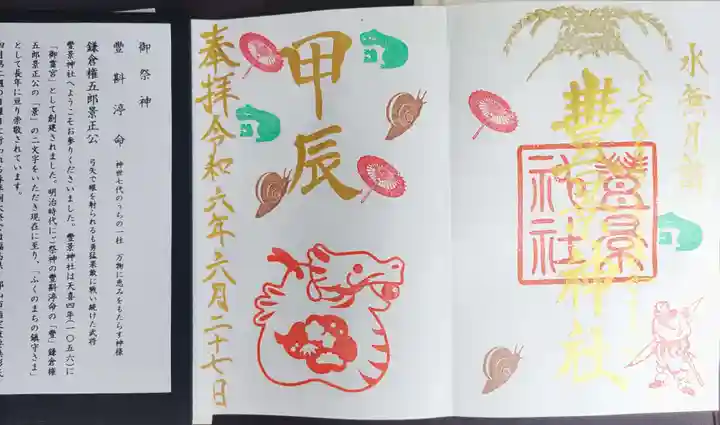 水無月詣
豊景神社
豊景
神社
甲辰
奉拝令和六年六月二十七日
御祭神
豐斟渟命 神世七代のうちの一柱 万物に恵みをもたらす神様
鎌倉権五郎景正公 弓矢で眼を射られるも勇猛果敢に戦い続けた武将
豊景神社へようこそお参りくださいました。豊景神社は天喜四年(一〇五六)に
「御霊宮」として創建されました。明治時代にご祭神の豐斟渟命の「豊」鎌倉権
五郎景正公の「景」の二文字をいただき現在に至り、「ふくのまちの鎮守さま」
として長年に亘り崇敬されています。